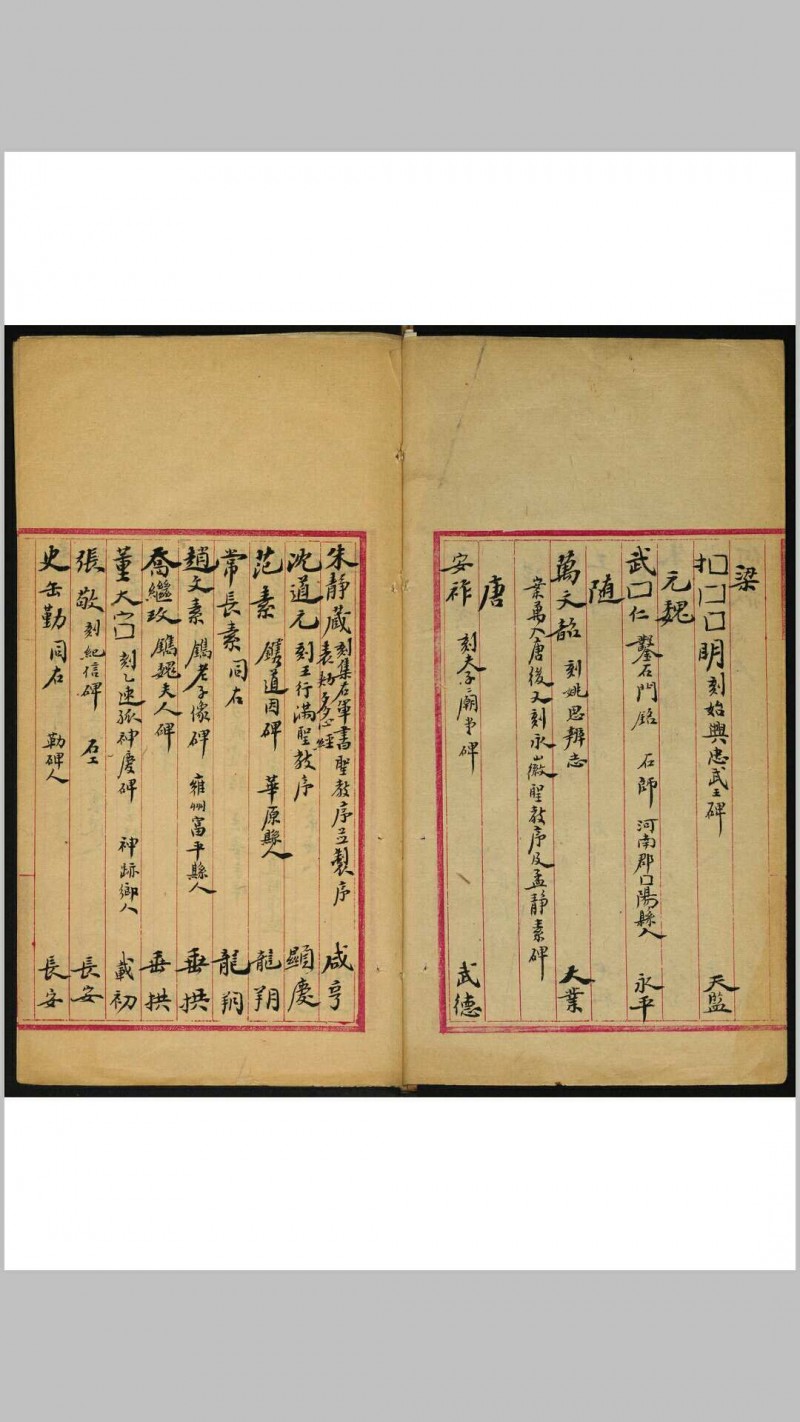 梁
□□□明 刻始興忠武王碑 天監
元魏
武□仁 鑿石門銘 石師 河南郡□陽縣人 永平
隨
萬文韶 刻姚思辨志 大業
案萬入唐後又刻永徽聖教序及孟靜素碑
唐
安祚 刻夫子廟堂碑 武德
朱靜藏 刻集右軍書聖教序并製序 咸亨
沈道元 刻王行滿聖教序 顯慶
范素 鐫道因碑 華原縣人 龍朔
常長素 同右 龍朔
趙文素 鐫老子像碑 雍州富平縣人 垂拱
喬繼玫 鐫魏夫人碑 垂拱
董大□ 刻乙速孤神慶碑 神跡鄉人 載初
張敬 刻紀信碑 石工 長安
史缶勤 同右 勒碑人 長安